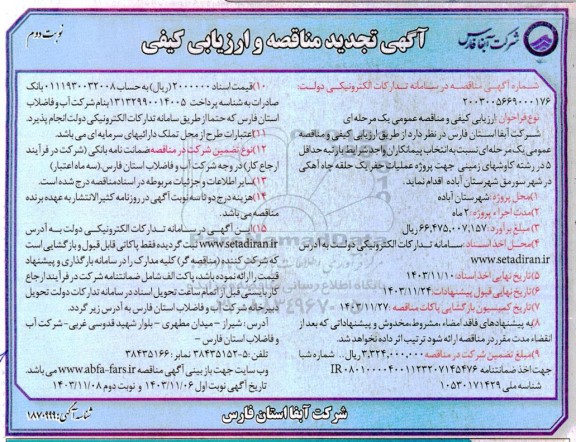 شرکت آبفا فارس
آگهی تجدید مناقصه و ارزیابی کیفی
نوبت دوم
شماره آگهی مناقصه در سامانه تدارکات الکترونیکی دولت:
۲۰۰۳۰۰۵۶۶۹۰۰۰۱۷۶
نوع فراخوان: ارزیابی کیفی و مناقصه عمومی یک مرحله ای
شرکت آبفا استان فارس در نظر دارد از طریق ارزیابی کیفی و مناقصه
عمومی یک مرحله ای نسبت به انتخاب پیمانکاران واجد شرایط با رتبه حداقل
۵ در رشته کاوشهای زمینی جهت پروژه عملیات حفر یک حلقه چاه آهکی
در شهر سورمق شهرستان آباده اقدام نماید.
۱)محل پروژه :شهرستان آباده
۲)مدت اجراء پروژه : ۲ ماه
۳)مبلغ برآورد: ۶۶,۴۷۵,۰۰۷,۱۵۷ ریال
۴)محل اخذ اسناد: سامانه تدارکات الکترونیکی دولت به آدرس
www.setadiran.ir
۵)تاریخ نهایی اخذ اسناد: ۱۴۰۳/۱۱/۱۰
۶)تاریخ نهایی قبول پیشنهادات: ۱۴۰۳/۱۱/۲۴
۷)تاریخ کمیسیون بازگشایی پاکات مناقصه : ۱۴۰۳/۱۱/۲۷
۸)به پیشنهادهای فاقد امضاء ،مشروط،مخدوش و پیشنهاداتی که بعد از
انقضاء مدت مقرر در مناقصه ارائه شود ترتیب اثر داده نخواهد شد.
۹)مبلغ تضمین شرکت در مناقصه: ۳,۳۲۴,۰۰۰,۰۰۰ ریال.. شماره شبا
جهت اخذ ضمانتنامه IR ۰۸۰۱۰۰۰۰۴۰۰۱۱۲۳۲۰۷۱۴۵۴۷۶
شناسه ملی ۱۰۵۳۰۱۷۱۴۲۹
۱۰)قیمت اسناد ۲۰۰۰۰۰۰ (ریال) به حساب ۰۱۱۱۹۳۰۰۳۲۰۰۸ بانک
صادرات به شناسه پرداخت ۱۳۱۳۲۹۹۰۰۱۴۰۰۵ بنام شرکت آب و فاضلاب
استان فارس که حتما از طریق سامانه تدارکات الکترونیکی دولت انجام پذیرد.
۱۱)اعتبارات طرح از محل تملک دارائیهای سرمایه ای می باشد.
۱۲)نوع تضمین شرکت در مناقصه :ضمانت نامه بانکی (شرکت در فرآیند
ارجاع کار) در وجه شرکت آب و فاضلاب استان فارس.(سه ماه اعتبار)
۱۳)سایر اطلاعات و جزئیات مربوطه در اسناد مناقصه درج شده است.
۱۴)هزینه درج دو تا سه نوبت آگهی در روزنامه کثیرالانتشار به عهده برنده
مناقصه می باشد.
۱۵)این آگهی در سامانه تدارکات الکترونیکی دولت به آدرس
www.setadiran.ir ثبت گردیده فقط پاکاتی قابل قبول و بازگشایی است
که شرکت کننده (مناقصه گر) کلیه مدارک را در سامانه بارگذاری و پیشنهاد
قیمت را ارائه نموده باشد، پاکت الف شامل ضمانتنامه شرکت در فرآیند ارجاع
کار بایستی قبل از اتمام ساعت تحویل اسناد در سامانه تدارکات دولت تحویل
دبیرخانه شرکت آب و فاضلاب استان فارس به آدرس زیر گردد.
آدرس : شیراز - میدان مطهری - بلوار شهید قدوسی غربی- شرکت آب
و فاضلاب استان فارس -
تلفن: ۵-۳۸۴۳۵۱۵۲ نمابر: ۳۸۴۳۵۱۶۶
وب سایت جهت بازبینی آگهی مناقصه www.abfa-fars.ir می باشد.
تاریخ آگهی نوبت اول ۱۴۰۳/۱۱/۰۶ و نوبت دوم ۱۴۰۳/۱۱/۰۸
شرکت آبفا استان فارس
شناسه آگهی: ۱۸۷۰۹۹۹